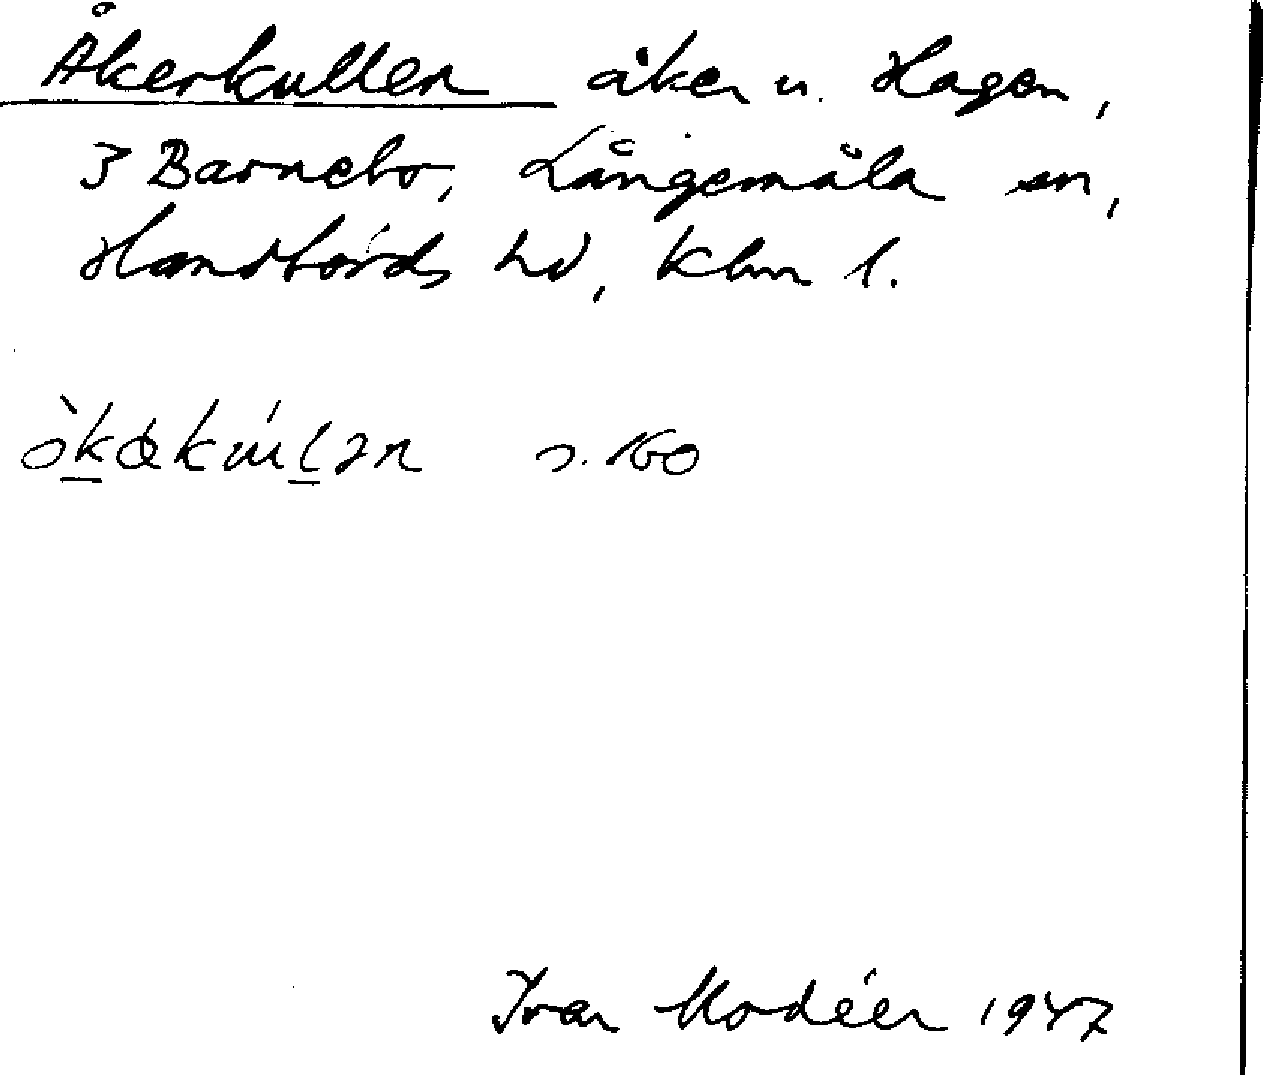 Åkerkullen åker u. Hagen,
3 Barnebo, Långemåla sn,
Handbörds hd, Klm l.
s. 160
Ivar Modéer 1947